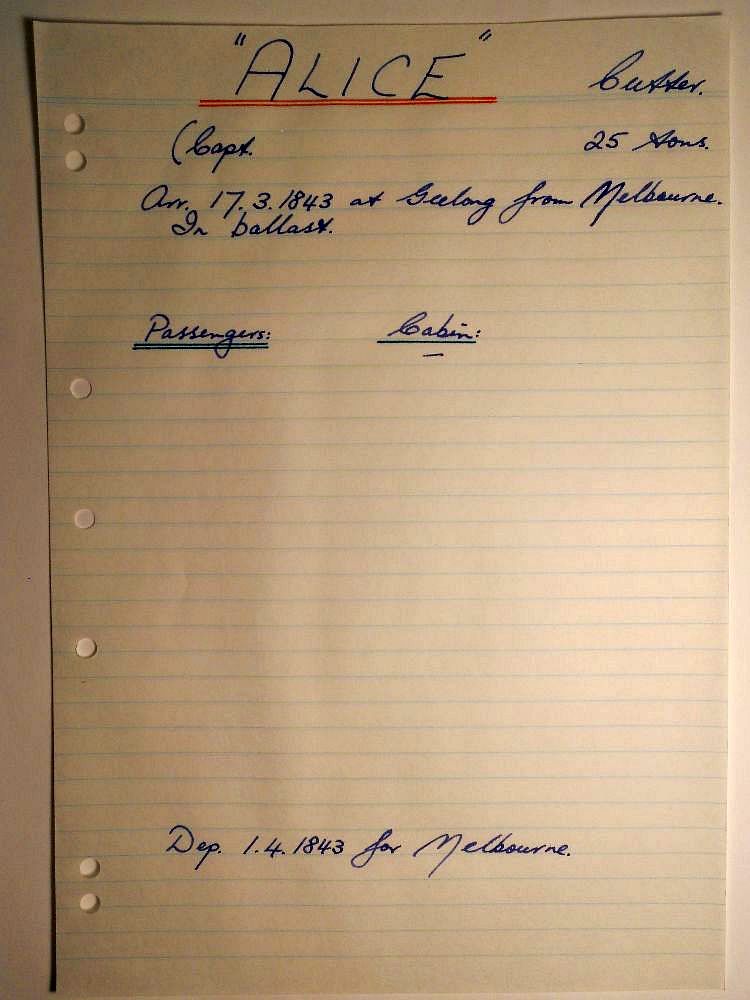 "ALICE" Cutter.
(Capt. 25 tons.
Arr. 17.3.1843 at Geelong from Melbourne.
In ballast.
Passengers: Cabin:
—
Dep. 1.4.1843 for Melbourne.